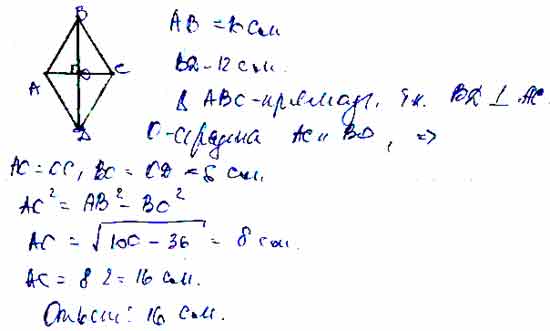 B
A O C
D
AB = 10 см
BD - 12 см.
Δ ABC - прямоуг, т.к. BD ⊥ AC
O - середина AC и BD, =>
AO = OC, BO = OD = 6 см.
AO² = AB² - BO²
AO = √100 - 36 = 8 см.
AC = 8 2 = 16 см.
Ответ: 16 см.